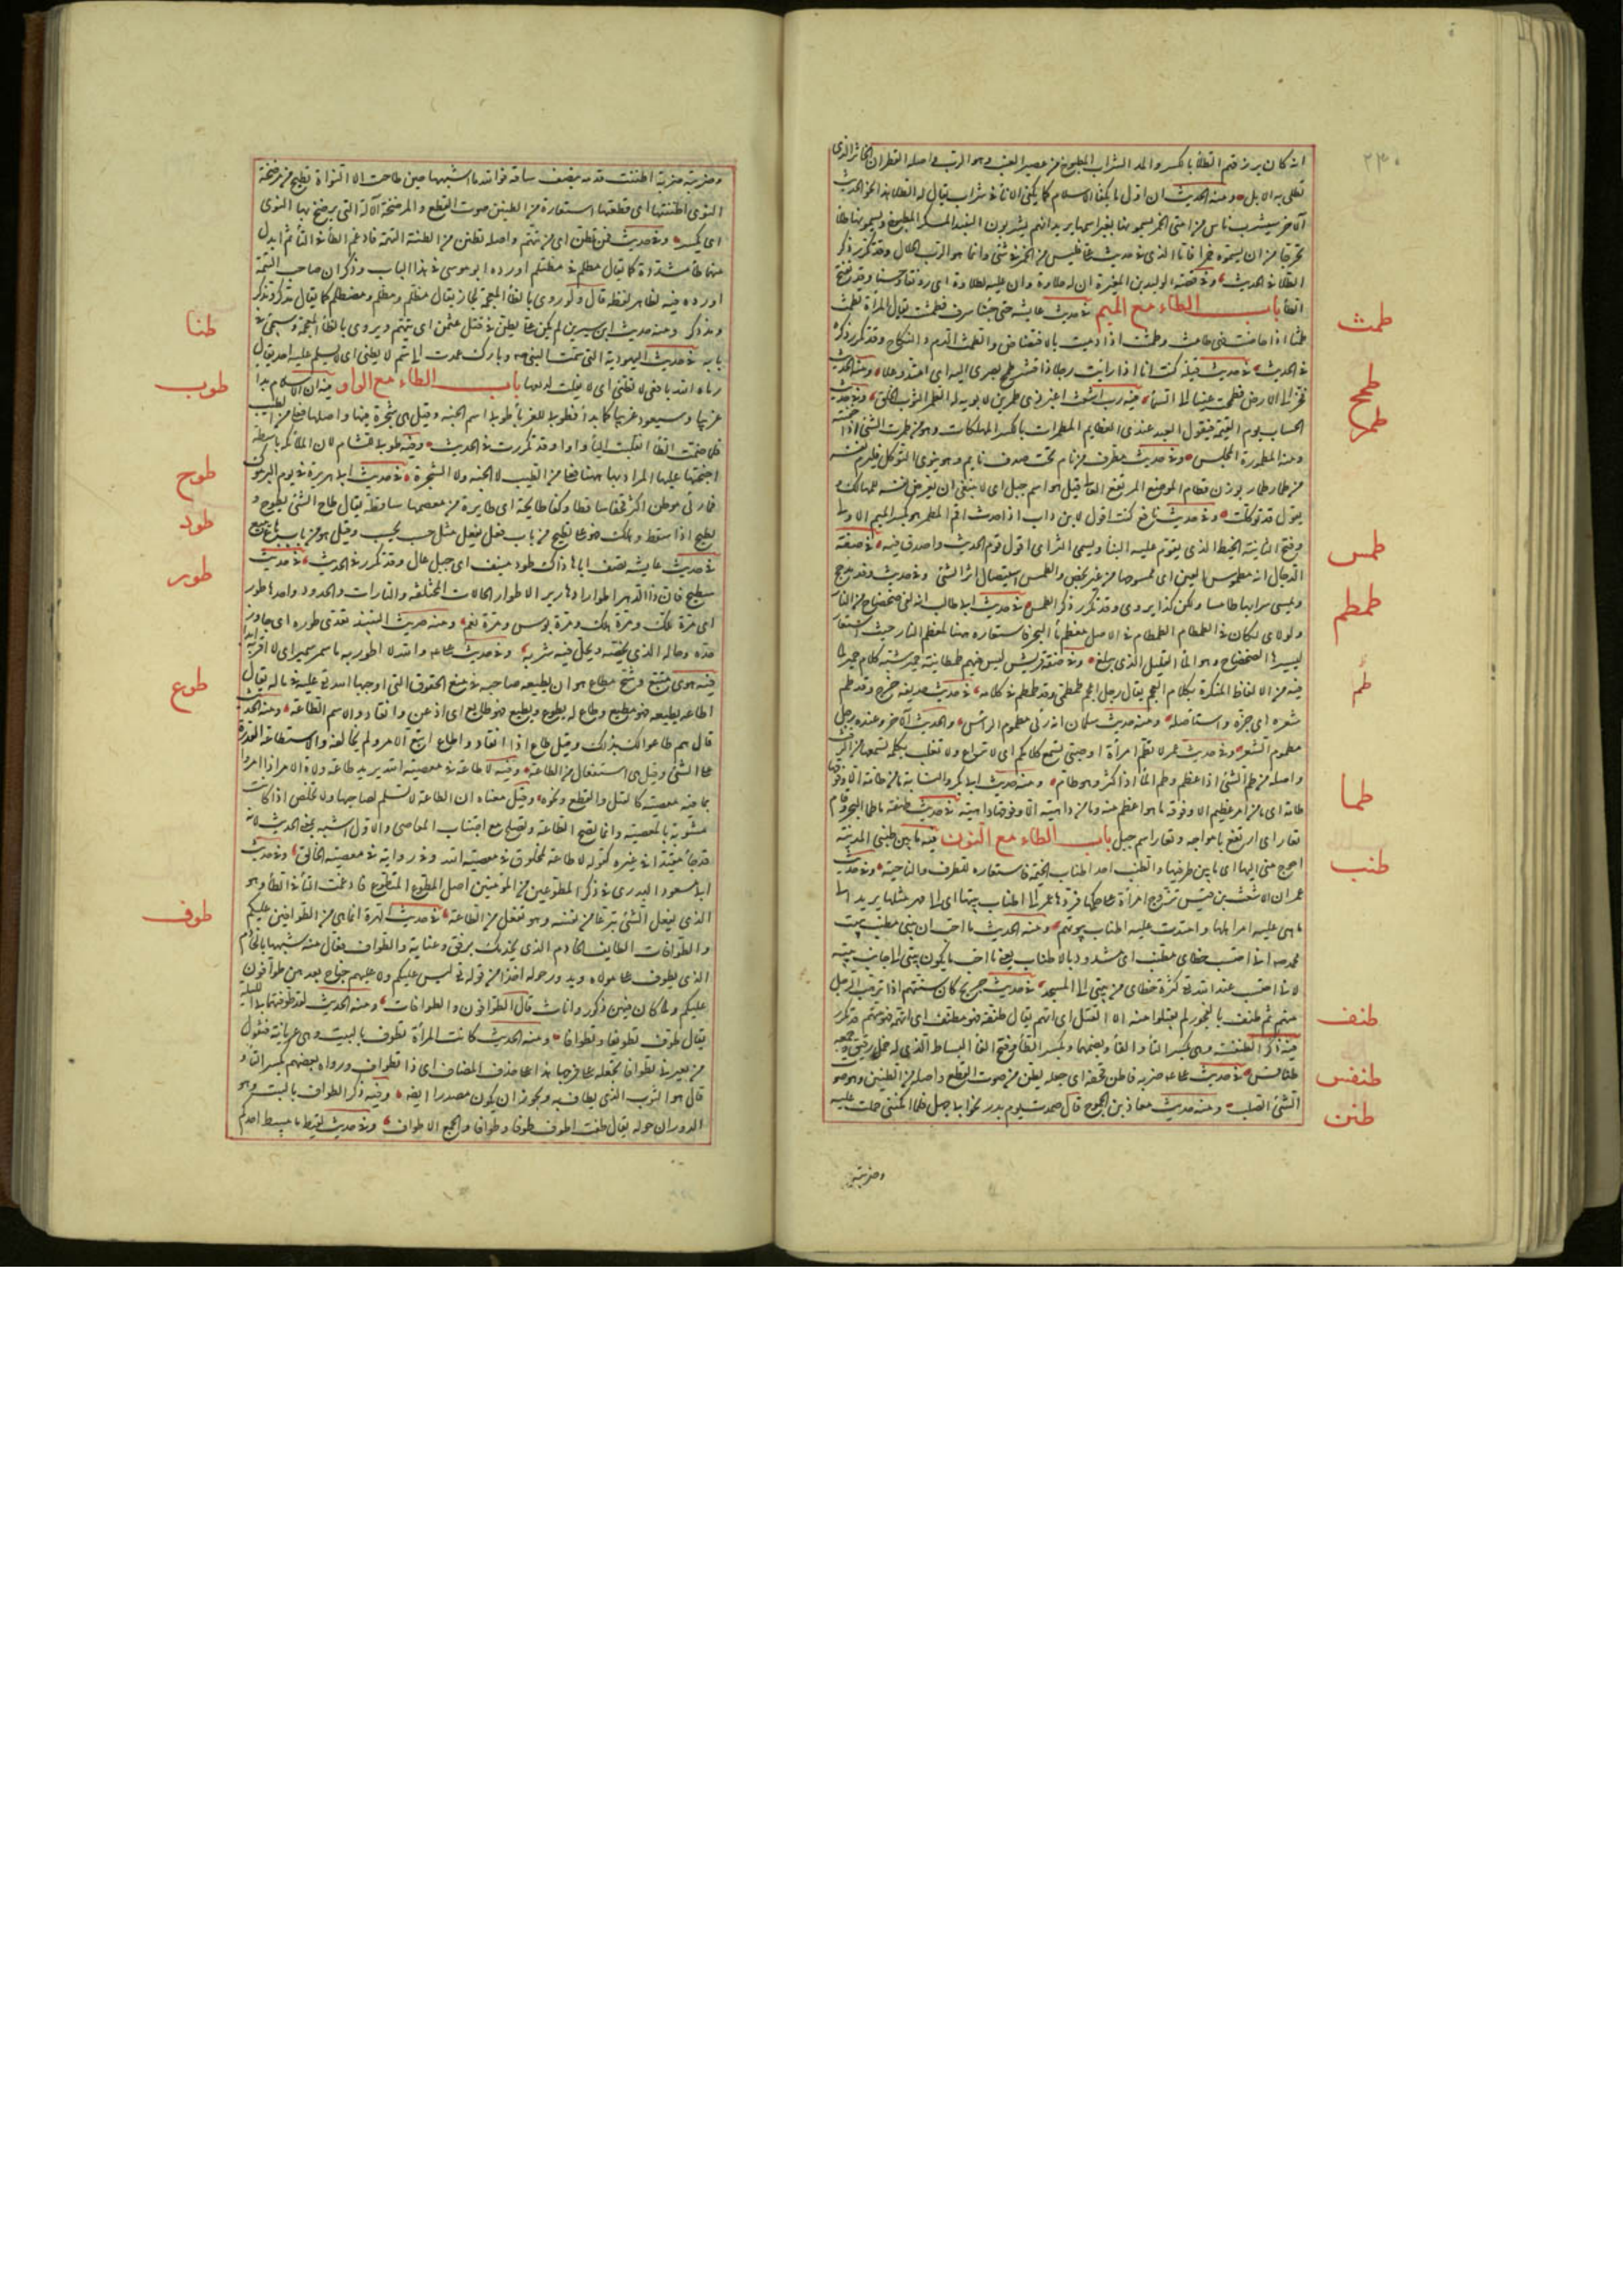 ٢٣٠
انه كان يرزقهم الطلاء بالكسر والمد الشراب المطبوخ من عصير العنب وهو الرب واصله القطران الخاثر الذي
تطلى به الابل ومنه الحديث ان اول ما يكفأ الاسلام كما يكفأ الاناء في شراب يقال له الطلاء هذا نحو الحديث
الآخر سيشرب ناس من امتي الخمر يسمونها بغير اسمها يريد انهم يشربون النبيذ المسكر المطبوخ ويسمونه طلاء
تحرجا من ان يسموه خمرا فاما الذي في حديث علي فليس من الخمر في شئ وانما هو الرب الحلال وقد تكرر ذكر
الطلاء في الحديث وفي قصة الوليد بن المغيرة ان له حلاوة وان عليه لطلاوة اي رونقا وحسنا وقد تفتح
الطاء باب الطاء مع الميم في حديث عايشة حتى جئنا سرف فطمثت يقال طمثت المرأة تطمث
طمثا اذا حاضت فهي طامث وطمثت اذا دميت بالافتضاض والطمث الدم والنكاح وقد تكرر ذكره
في الحديث في حديث قيلة كنت اذا رايت رجلا ذا قشر طمح بصري اليه اي امتد وعلا ومنه الحديث
فخر الى الارض فطمحت عيناه الى السماء فيه رب اشعث اغبر ذي طمرين لا يؤبه له الطمر الثوب الخلق وفي حديث
الحساب يوم القيمة فيقول العبد عندي العظايم المطمرات بالكسر المهلكات وهو من طمرت الشئ اذا خبيته
ومنه المطمورة المجلس وفي حديث مطرف من نام تحت صدف مايل وهو ينوي التوكل فليرم نفسه
من طمار طمار بوزن قطام الموضع المرتفع العالي قيل هو اسم جبل اي لا ينبغي ان يعرض نفسه للمهالك و
يقول قد توكلت وفي حديث نافع كنت اقول لابن داب اذا حدث اقم المطمر هو بكسر الميم الاولى
وفتح الثانية الخيط الذي يقوم عليه البناء ويسمى التر اي اقول قوم الحديث واصدق فيه في صفة
الدجال انه مطموس العين اي ممسوحها من غير بخص والطمس استيصال اثر الشئ وفي حديث وفد مذحج
ويمسي سرابها طامسا ولكن كذا يروى وقد تكرر ذكر الطمس في حديث ابي طالب انه لفي ضحضاح من النار
ولولاي لكان في الطمطام الطمطام في الاصل معظم ماء البحر فاستعاره هنا لمعظم النار حيث استعار
ليسيرها الضحضاح وهو الماء القليل الذي يبلغ وفي صفة قريش ليس فيهم طمطمانية حمير شبه كلام حمير لما
فيه من الالفاظ المنكرة بكلام العجم يقال رجل اعجم طمطمي وقد طمطم في كلامه في حديث حذيفة خرج وقد طم
شعره اي جزه واستأصله ومنه حديث سلمان انه رئي مطموم الرأس والحديث الآخر وعنده رجل
مطموم الشعر وفي حديث عمر لا تطم امرأة او صبي تسمع كلامكم اي لا تراع ولا تغلب بكلمة تسمعها من الرفث
واصله من طم الشئ اذا عظم وطم الماء اذا كثر وهو طام ومنه حديث ابي بكر والنسابة ما من طامة الا وفوقها
طامة اي ما من امر عظيم الا وفوقه ما هو اعظم منه وما من داهية الا وفوقها داهية في حديث طهفة ما طما البحر وقام
تعار اي ارتفع بامواجه وتعار اسم جبل باب الطاء مع النون فيه ما بين طنبي المدينة
احوج مني اليها اي ما بين طرفيها والطنب احد اطناب الخيمة فاستعاره للطرف والناحية وفي حديث
عمر ان الاشعث بن قيس تزوج امرأة على حكمها فردها عمر الى اطناب بيتها اي الى مهر مثلها يريد الى
ما بني عليه امر اهلها وامتدت عليه اطناب بيوتهم ومنه الحديث ما احب ان بيتي مطنب ببيت
محمد صه اني احتسب خطاي مطنب اي مشدود بالاطناب يعني ما احب ان يكون بيتي الى جانب بيته
لاني احتسب عند الله تعه كثرة خطاي من بيتي الى المسجد في حديث جريج كان سنتهم اذا ترهب الرجل
منهم ثم طنف بالفجور لم يقبلوا منه الا القتل اي اتهم يقال طنفته فهو مطنف اي اتهمته فهو متهم قد تكرر
فيه ذكر الطنفسة وهي بكسر الطاء والفاء وبضمهما وبكسر الطاء وفتح الفاء البساط الذي له خمل رقيق وجمعه
طنافس في حديث علي عه ضربه فاطن قحفه اي جعله يطن من صوت القطع واصله من الطنين وهو صوت
الشئ الصلب ومنه حديث معاذ بن الجموح قال صمدت يوم بدر نحو ابي جهل فلما امكنني حملت عليه
وضربته
طمث
طمح
طمر
طمس
طمطم
طم
طما
طنب
طنف
طنفس
طنن
وضربته ضربة اطننت قدمه بنصف ساقه فوالله ما اشبهها حين طاحت الا النواة تطيح من مرضخة
النوى اطننتها اي قطعتها استعارة من الطنين صوت القطع والمرضخة الآلة التي يرضخ بها النوى
اي يكسر وفي حديث فمن تطن اي من تتهم واصله تظتن من الظنة التهمة فادغم الظاء في التاء ثم ابدل
منهما طاء مشددة كما يقال مطلم في مظتلم اورده ابو موسى في هذا الباب وذكر ان صاحب التتمة
اورده فيه لظاهر لفظه قال ولو روي بالظاء المعجمة لجاز يقال مظلم ومطلم ومضطلم كما يقال مدكر ومذكر
ومذدكر ومنه حديث ابن سيرين لم يكن علي يطن في قتل عثمن اي يتهم ويروى بالظاء المعجمة وسيجئ في
بابه في حديث اليهودية التي سمت النبي صه وبارك عمدت الى سم لا يطني اي لا يسلم عليه احد يقال
رماه الله بافعى لا تطني اي لا يفلت لديغها باب الطاء مع الواو فيه ان الاسلام بدا
غريبا وسيعود غريبا كما بدأ فطوبى للغرباء طوبى اسم الجنة وقيل هي شجرة فيها واصلها فعلى من الطيب
فلما ضمت الطاء انقلبت الياء واوا وقد تكررت في الحديث وفيه طوبى للشام لان الملائكة باسطة
اجنحتها عليها المراد بها ههنا فعلى من الطيب لا الجنة ولا الشجرة في حديث ابي هريرة في يوم اليرموك
فما رئي موطن اكثر قحفا ساقطا وكفا طايحة اي طايرة من معصمها ساقطة يقال طاح الشئ يطوح و
يطيح اذا سقط وهلك فهو على يطيح من باب فعل يفعل مثل حسب يحسب وقيل هو من باب باع يبيع
في حديث عايشة تصف اباها ذاك طود منيف اي جبل عال وقد تكرر في الحديث في حديث
سطيح فان ذا الدهر اطوارا دهارير الاطوار الحالات المختلفة والتارات والحدود واحدها طور
اي مرة ملك ومرة هلك ومرة بؤس ومرة نعم ومنه حديث النبيذ تعدى طوره اي جاوز
حده وحاله الذي يخصه ويحل فيه شربه وفي حديث علي عه والله لا اطور به ما سمر سمير اي لا اقربه ابدا
فيه هوى متبع وشح مطاع هو ان يطيعه صاحبه في منع الحقوق التي اوجبها الله تع عليه في ماله يقال
اطاعه يطيعه فهو مطيع وطاع له يطوع ويطيع فهو طايع اي اذعن وانقاد والاسم الطاعة ومنه الحديث
قال هم طاعوا لك بذلك وقيل طاع اذا انقاد واطاع اتبع الامر ولم يخالفه والاستطاعة القدرة
على الشئ وقيل هي استفعال من الطاعة وفيه لا طاعة في معصية الله يريد طاعة ولاة الامر اذا امروا
بما فيه معصية كالقتل والقطع ونحوه وقيل معناه ان الطاعة لا تسلم لصاحبها ولا تخلص اذا كانت
مشوبة بالمعصية وانما تصح الطاعة وتصلح مع اجتناب المعاصي والاول اشبه بمعنى الحديث لانه
قد جاء مقيدا في غيره كقوله لا طاعة لمخلوق في معصية الله وفي رواية في معصية الخالق وفي حديث
ابي مسعود البدري في ذكر المطوعين من المؤمنين اصل المطوع المتطوع فادغمت التاء في الطاء وهو
الذي يفعل الشئ تبرعا من نفسه وهو تفعل من الطاعة في حديث الهرة انما هي من الطوافين عليكم
والطوافات الطايف الخادم الذي يخدمك برفق وعناية والطواف فعال منه شبهها بالخادم
الذي يطوف على مولاه ويدور حوله اخذا من قوله تع ليس عليكم ولا عليهم جناح بعدهن طوافون
عليكم ولما كان فيهن ذكور واناث قال الطوافون والطوافات ومنه الحديث لقد طوفتما بي الليلة
يقال طوف تطويفا وتطوافا ومنه الحديث كانت المرأة تطوف بالبيت وهي عريانة فتقول
من يعيرني تطوافا تجعله على فرجها هذا على حذف المضاف اي ذا تطواف ورواه بعضهم بكسر التاء و
قال هو الثوب الذي يطاف به ويجوز ان يكون مصدرا ايضا وفيه ذكر الطواف بالبيت وهو
الدوران حوله يقال طفت اطوف طوفا وطوافا والجمع الاطواف وفي حديث لقيط ما يبسط احدكم
طنا
طوب
طوح
طود
طور
طوع
طوف